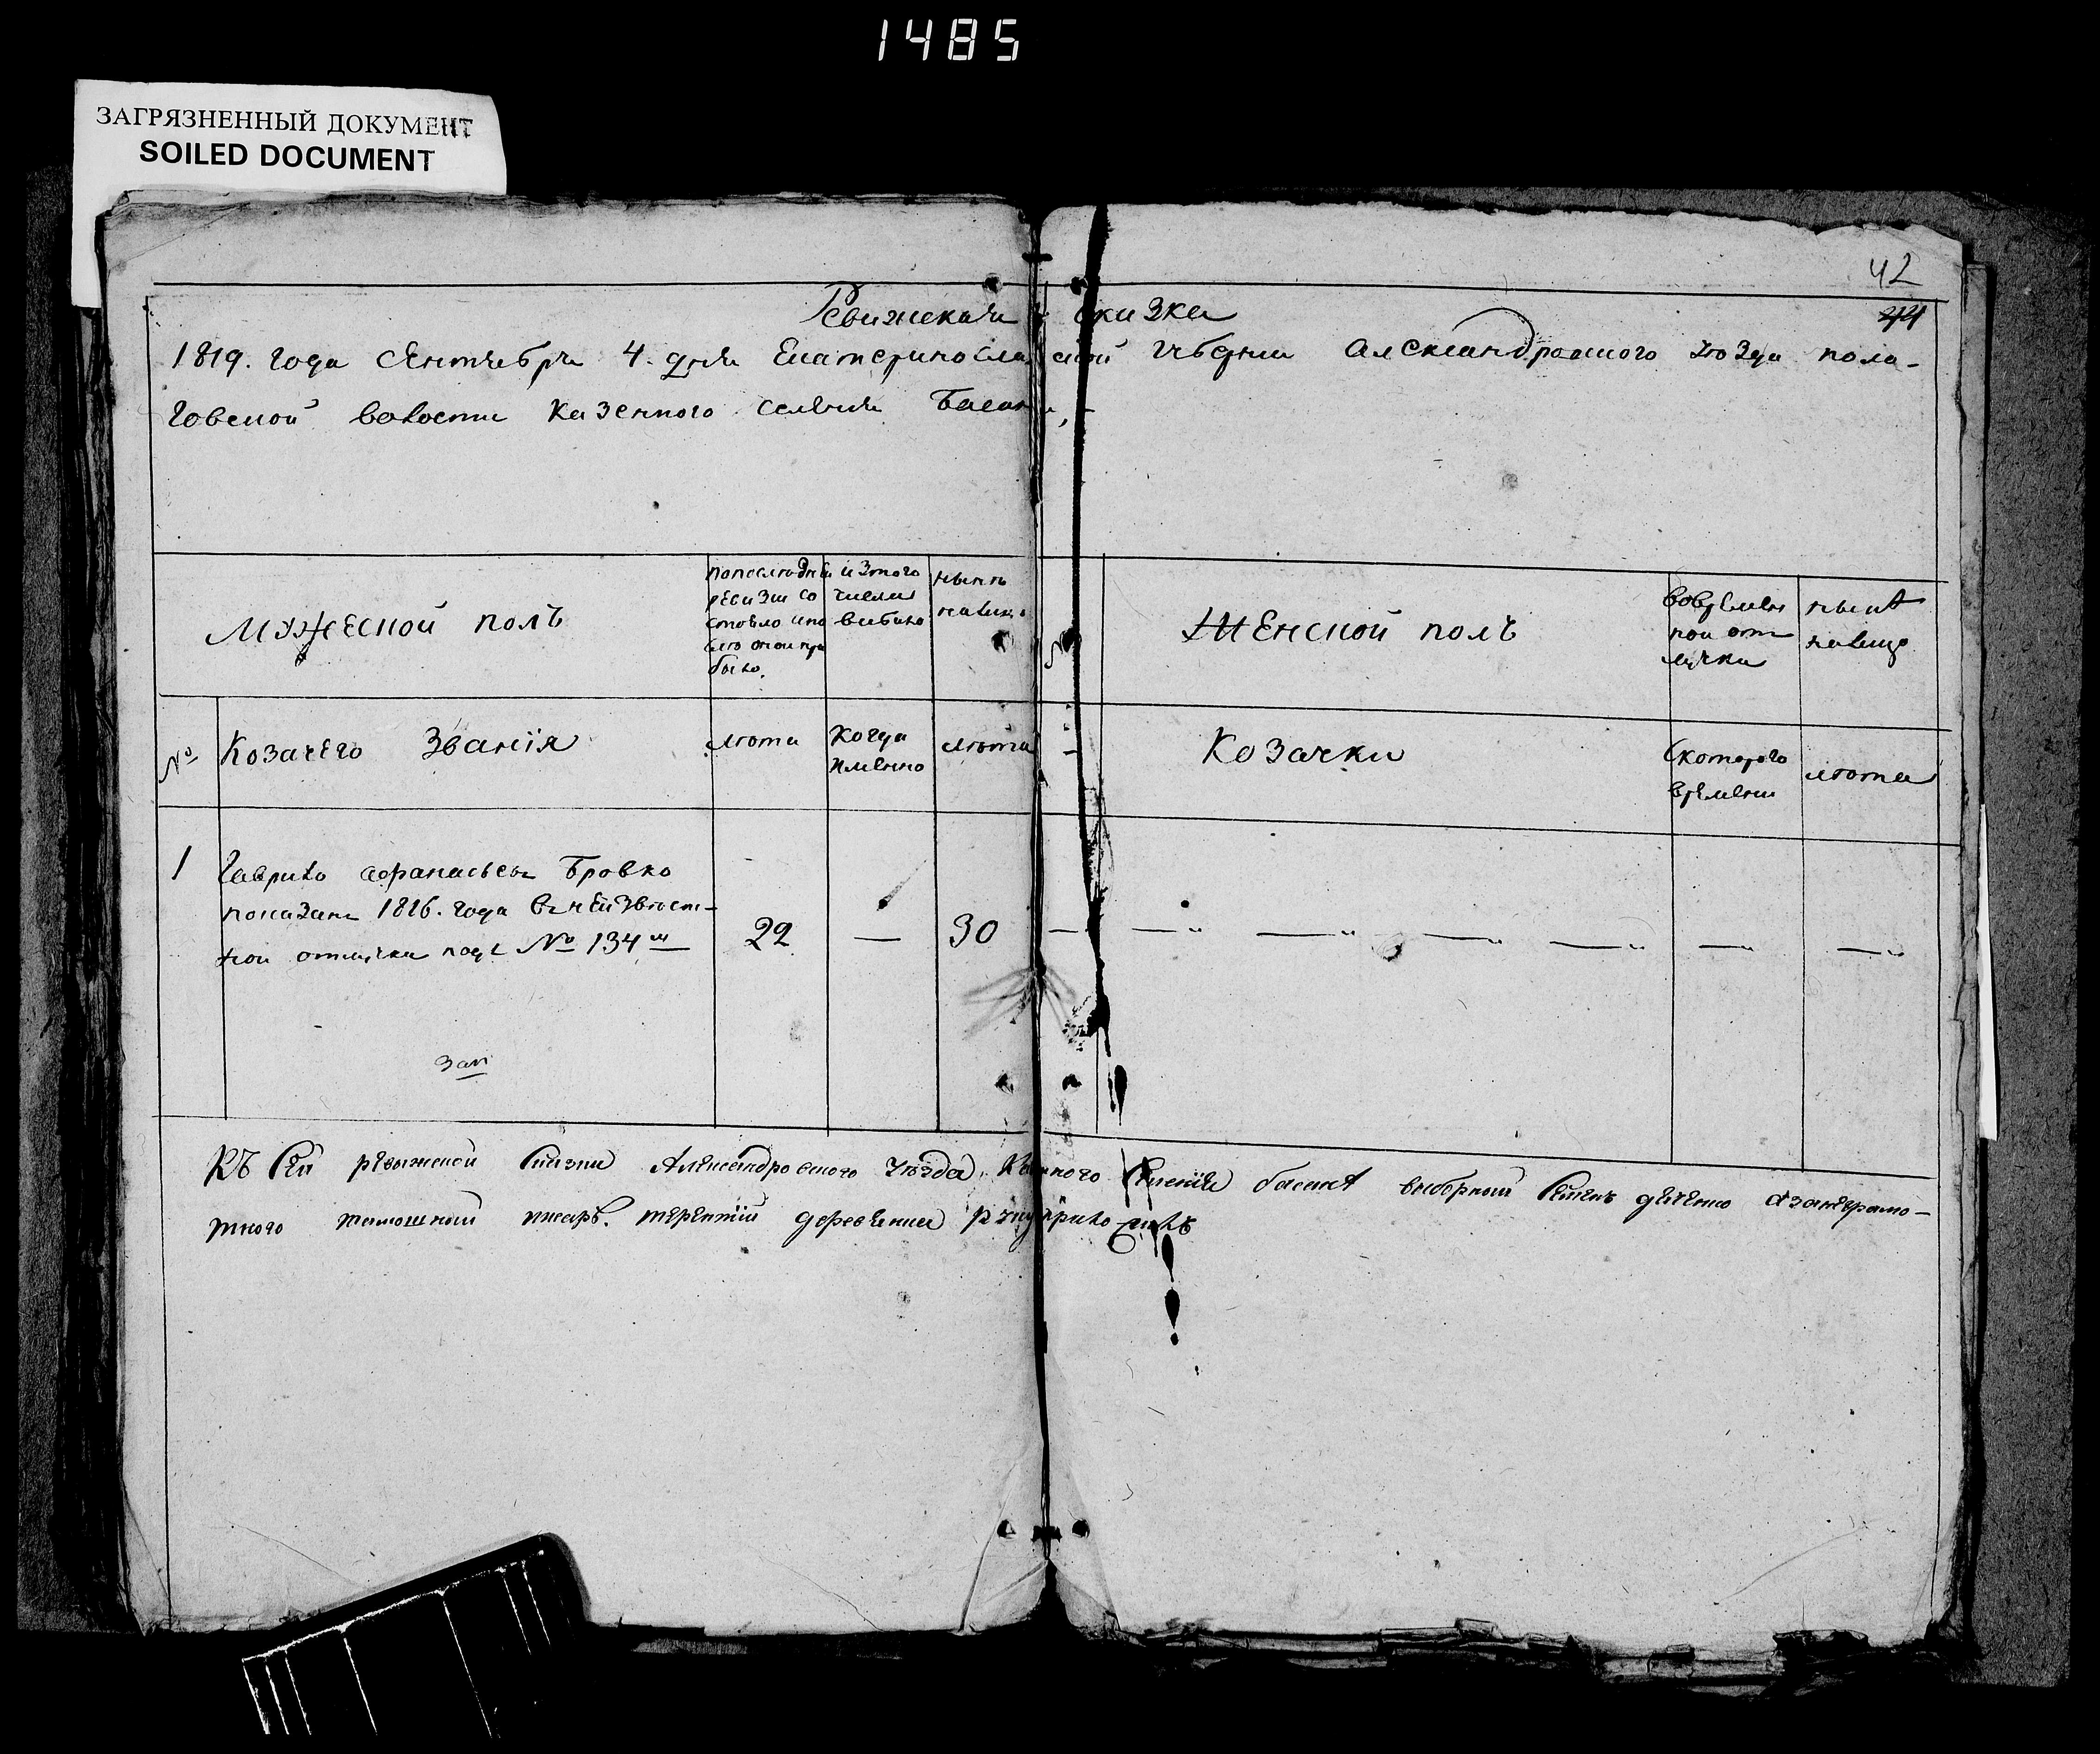 1485
ЗАГРЯЗНЕННЫЙ ДОКУМЕНТ
SOILED DOCUMENT
42
44
Ревижская сказка
1819. года сентебря 4. дня Екатеринославской губерни александровского уезда пола-
говской волости казенного селения Басани,
Мужеской полъ
попоследней
ревизии со
стояло и по
сле оной при
было.
изтого
числа
выбыло
ныне
налицо
№
Женской полъ
вовремен
ной от
лучки
ныне
налицо
№
Козачего Званія
лета
когда
именно
лета
Козачки
скоторого
времени
лета
1
Гаврило афанасьевъ Бровко
показанъ 1816. года внеизвест-
ной отлучки подъ № 134м
22
—
30
зап
Къ сей ревижской сказки Александровского уезда казенного селения басани выборный Семенъ
тного тамошный писаръ. терентий руку приложилъ